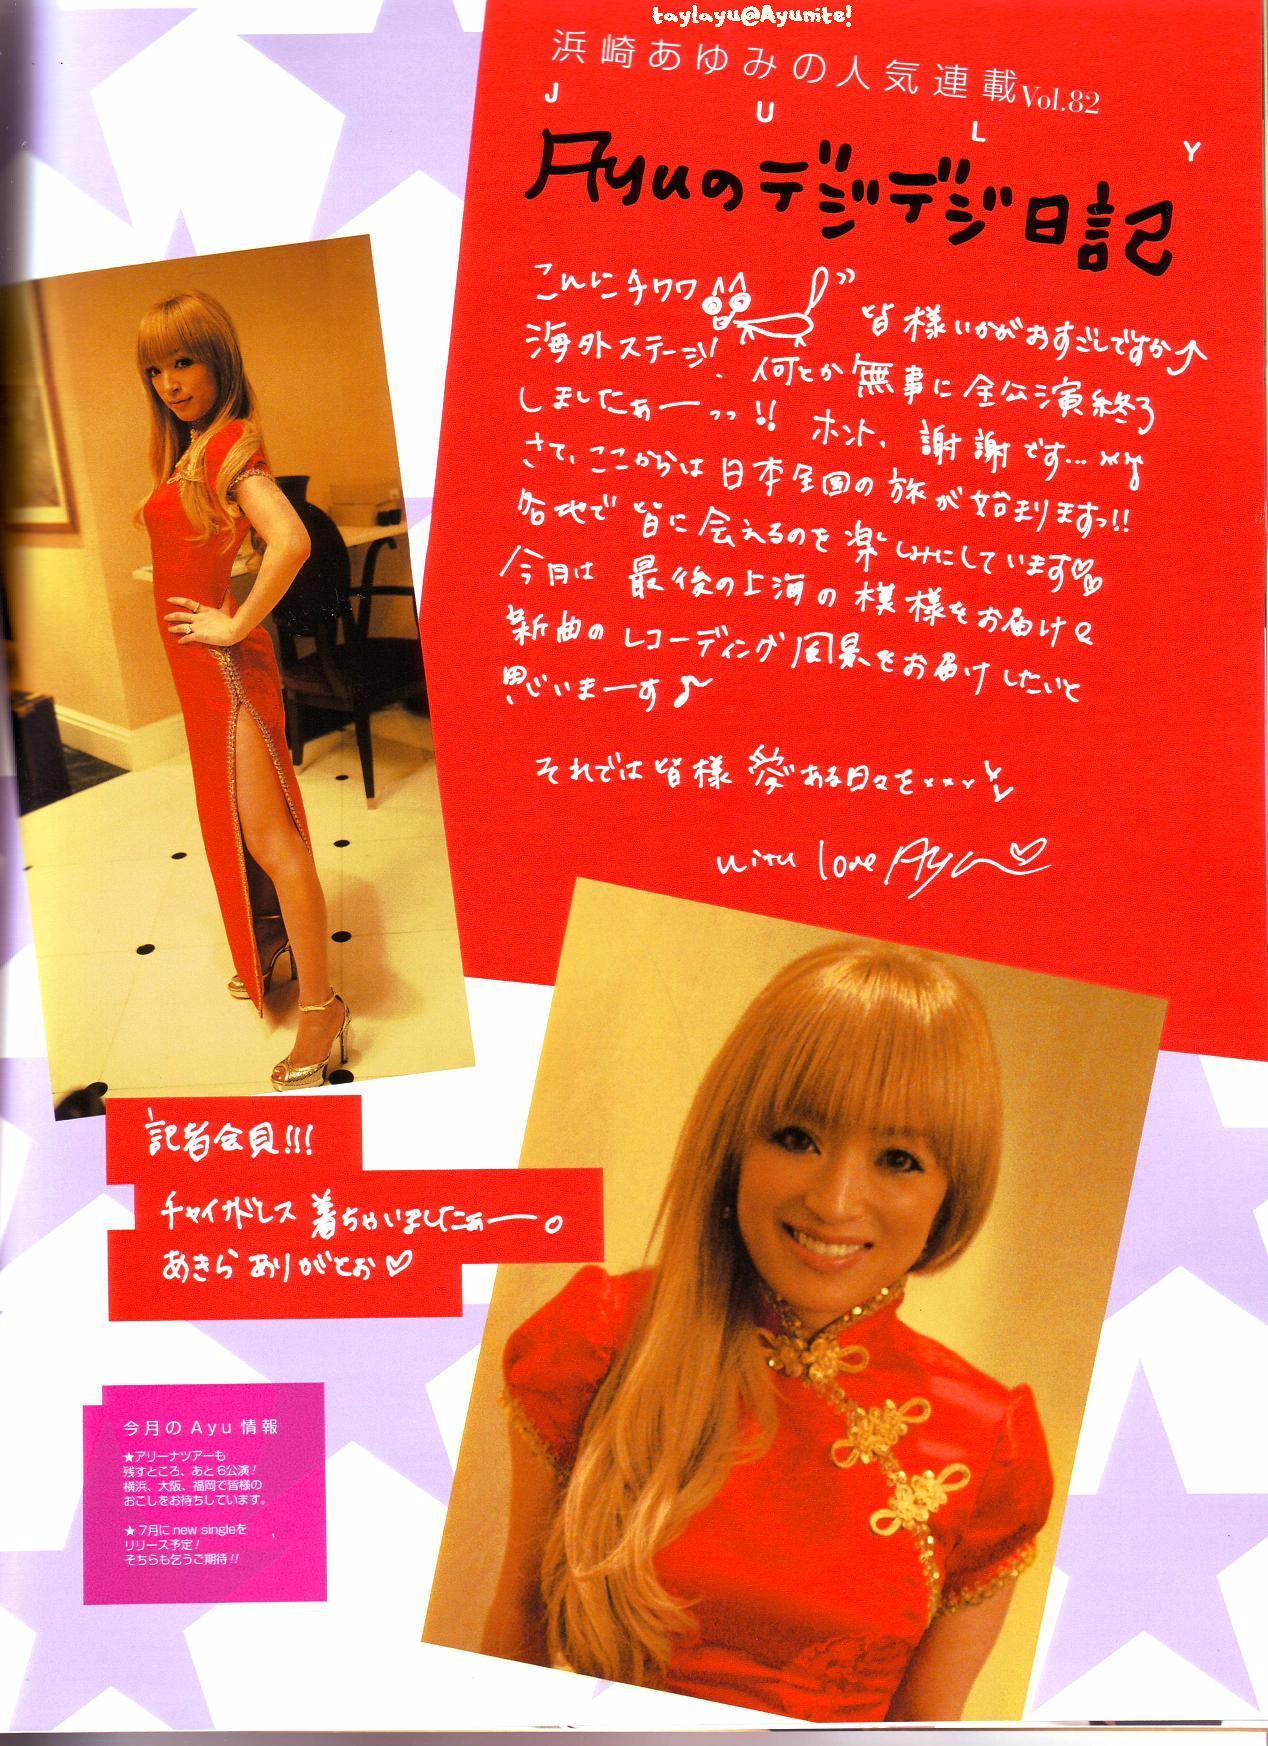 taylayu@Ayunite!
浜崎あゆみの人気連載Vol.82
JULY
Ayuのデジデジ日記
こんにチワワ 皆様いかがおすごしですか↑
海外ステージ! 何とか無事に全公演終了
しましたぁーっっ!! ホント、謝謝です…
さて、ここからは日本全国の旅が始まりますっ!!
各地で皆に会えるのを楽しみにしています♡♡
今月は最後の上海の模様をお届け&
新曲のレコーディング風景をお届けしたいと
思いまーす♪
それでは皆様愛ある日々を
with love Ayu♡
記者会見!!!
チャイナドレス着ちゃいましたぁー。
あきらありがとお♡
今月のAyu情報
★アリーナツアーも
残すところ、あと6公演!
横浜、大阪、福岡で皆様の
おこしをお待ちしています。
★7月にnew singleを
リリース予定!
そちらも乞うご期待!!